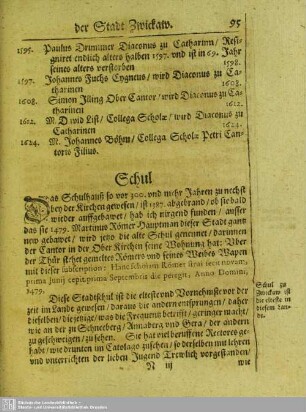 der Stadt Zwickaw. 95
1595. Paulus Drummer Diaconus zu Catharinn / Resi-
gniret endlich alters halben 1597. und ist in 69. Jahr
seines alters verstorben 1598.
1597. Johannes Fuchs Cygneus / wird Diaconus zu Ca-
tharinen 1608.
1608. Simon Illing Ober Cantor / wird Diaconus zu Ca-
tharinen 1612.
1612. M. David List / Collega Scholæ / wird Diaconus zu
Catharinen 1624.
1624. M. Johannes Böhm / Collega Scholæ Petri Can-
toris Filius.
Schul
Das Schulhauß so vor 300. und mehr Jahren zu nechst
bey der Kirchen gewesen / ist 1587. abgebrand / ob sie bald
wieder auffgebawet / hab ich nirgend funden / ausser
das sie 1479. Martinus Römer Hauptman dieser Stadt gantz
new gebawet / wird jetzo die alte Schul genennet / darinnen
der Cantor in der Ober Kirchen seine Wohnung hat: Uber
der Thür stehet gemeltes Römers und seines Weibes Wapen
mit dieser subscription: Hanc scholam Römer struxit
prima Junij cepit, prima Septembris die peregit, Anno Domini,
1479.
Diese Stadtschul ist die elteste und Vornehmste vor der
zeit im Lande gewesen / daraus die andern entsprungen / daher
dieselben / die jetzige / was die Frequentz betrifft / geringer worden /
wie an der zu Schneeberg / Annaberg und Gera / der andern
zu geschweigen / zu sehen. Sie hat viel beruffene Rectores ge-
habt / wie drunten im Catalogo zusehen / so derselben mit lehren
und unterrichten der lieben Jugend Trewlich vorgestanden /
N iij wie
Schul zu
Zwickaw ist
die elteste in
diesem Lan-
de.